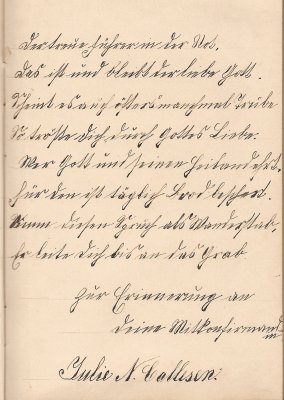 Der treue Führer in der Not,
Das ist und bleibt der liebe Gott.
Scheint es auch öfters manchmal Trübe
So tröste Dich durch Gottes Liebe.
Wer Gott und seinen Heiland ehrt,
Für den ist täglich Brod beschert.
Nimm diesen Spruch als Wanderstab,
Er leite Dich bis an das Grab
Zur Erinnerung an
Deine Mitkonfirmandin
Julie N. Callesen.